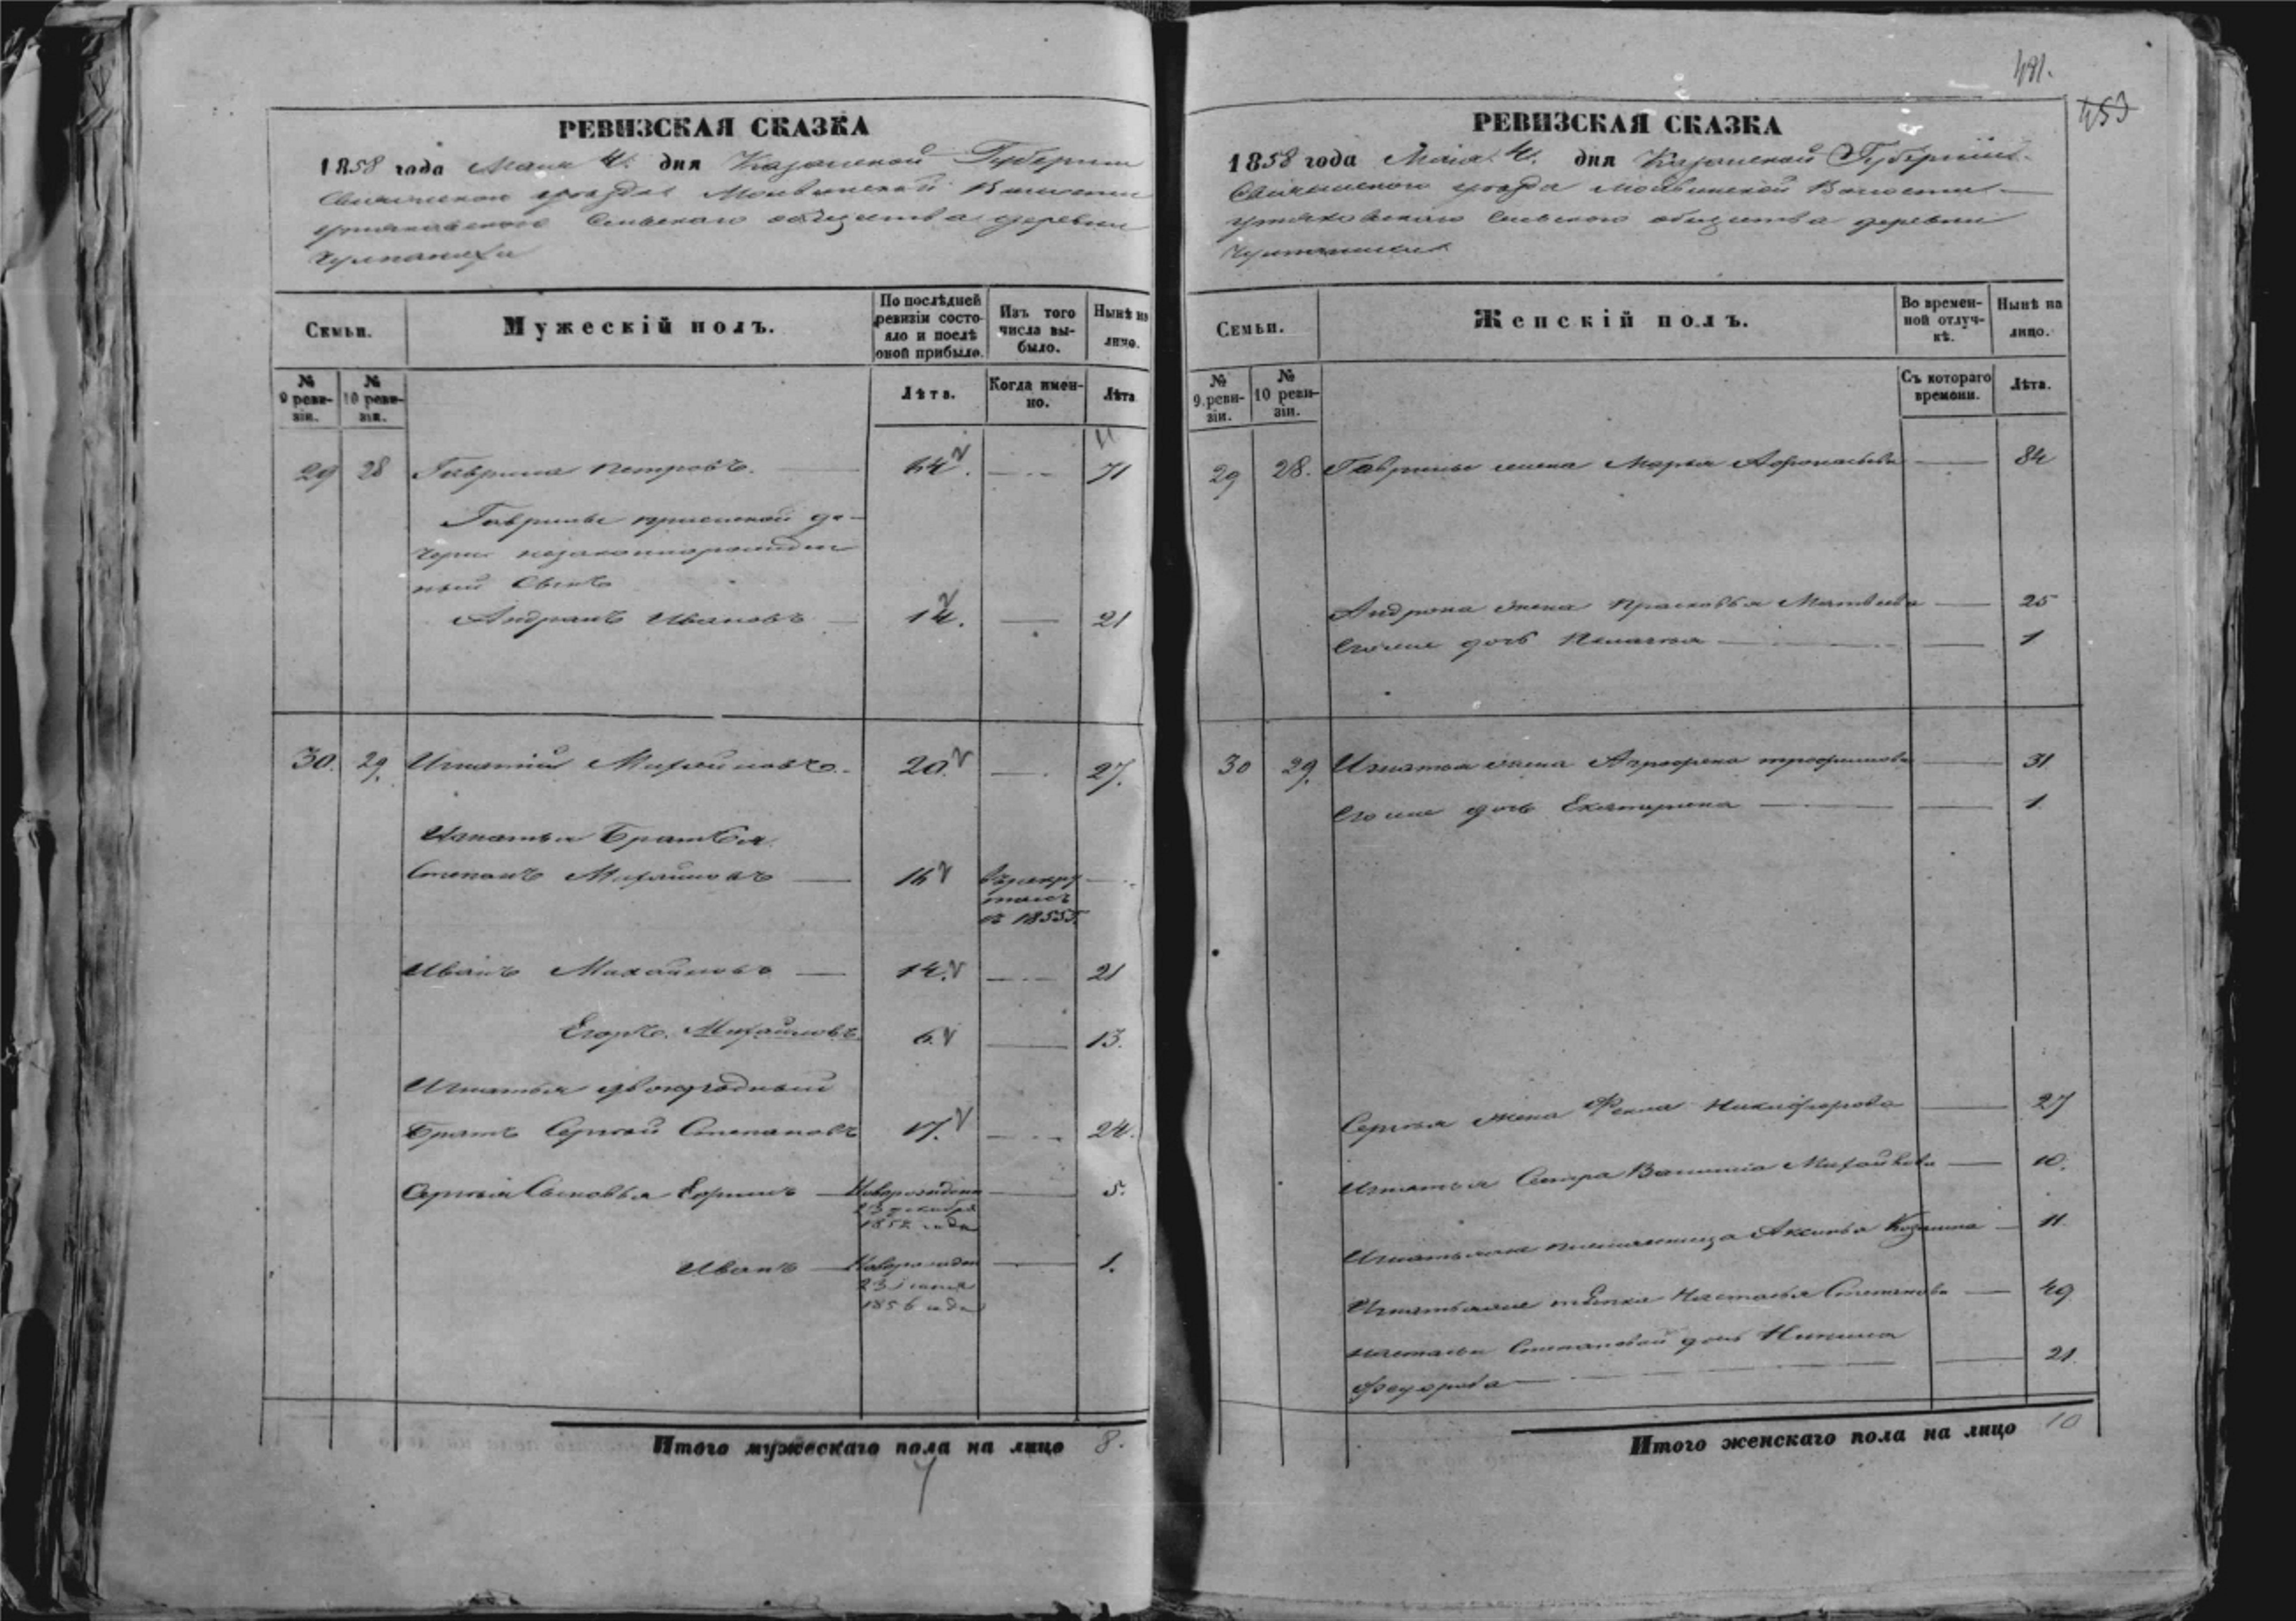 РЕВИЗСКАЯ СКАЗКА
1858 года Маия 4. дня Казанской Губернии
уезда Волости
Сельскаго общества деревни
Семьи.
Мужескій полъ.
По послѣдней ревизіи состояло и послѣ оной прибыло.
Изъ того числа выбыло.
Нынѣ на лицо.
№ 9 ревизіи.
№ 10 ревизіи.
Лѣта.
Когда именно.
Лѣта
29 28 Гаврила Петровъ. 64. 71
Гаврилы приемной до-
чери незаконнорожден
ный сынъ
Андронъ Ивановъ 14. 21
30. 29. Игнатий Михайловъ. 20 27.
Игнатья Братья
Степанъ Михайловъ 16 въ рекру
тахъ
съ 1855
Иванъ Михайловъ 14. 21
Егоръ Михайловъ 6. 13.
Игнатья двоюродный
Братъ Сергей Степановъ 17. 24.
Сергея Сыновья Новорожден 5.
23 декабря
1852 года
Иванъ Новорожден 1.
23
1856 года
Итого мужескаго пола на лицо 8.
7
481.
453
РЕВИЗСКАЯ СКАЗКА
1858 года Маія 4. дня Казанской Губерніи
уезда Волости
Сельскаго общества деревни
Семьи.
Женскій полъ.
Во временной отлучкѣ.
Нынѣ на лицо.
№ 9 ревизіи.
№ 10 ревизіи.
Съ котораго времени.
Лѣта.
29 28. Гаврилы жена Марья 84
Андрона жена Прасковья Матвеева 25
Егоже дочь Пелагея 1
30 29. Игнатья жена Трофимова 31
Егоже дочь Екатерина 1.
Сергея жена Фекла Никифорова 27
Игнатья Сестра Михайлова 10.
Игнатья племянница Аксинья 11
тетка Настасья Степанова 49
Настасьи Степановой дочь
Федорова 21.
Итого женскаго пола на лицо 10